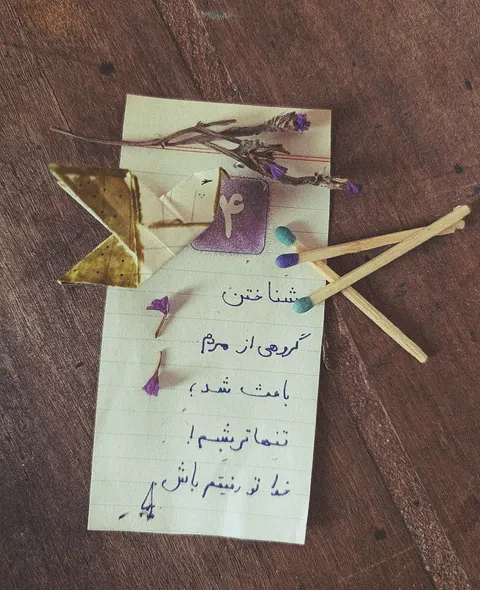 ۴
شناختن
گروهی از مردم
باعث شد؛
تنهاتر بشم!
خدا تو رفیقم باش.